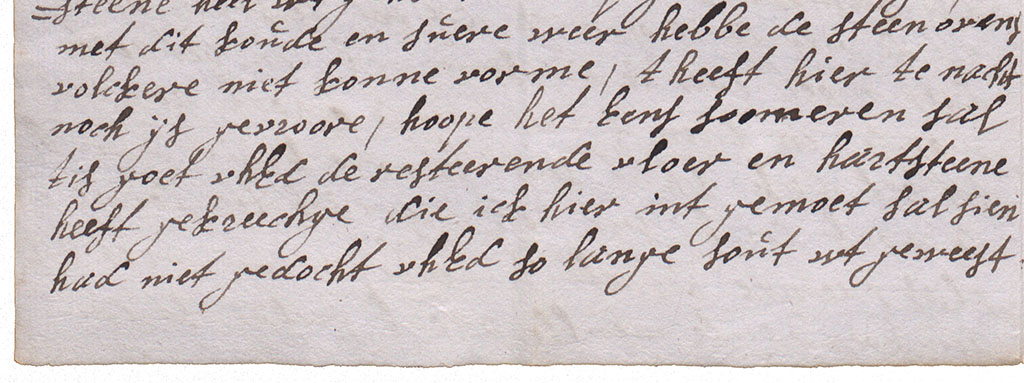 =steene heel
met dit koude en suere weer hebbe de steenovens
volckere niet konne vorme, t heeft hier te nacht
noch ijs gevroore, hoope het eens soomeren sal
tis goet vhEd de resteerende vloer en hartsteene
heeft gekreechge die ick hier int gemoet sal sien
had niet gedocht vhEd so lange sout wt geweest